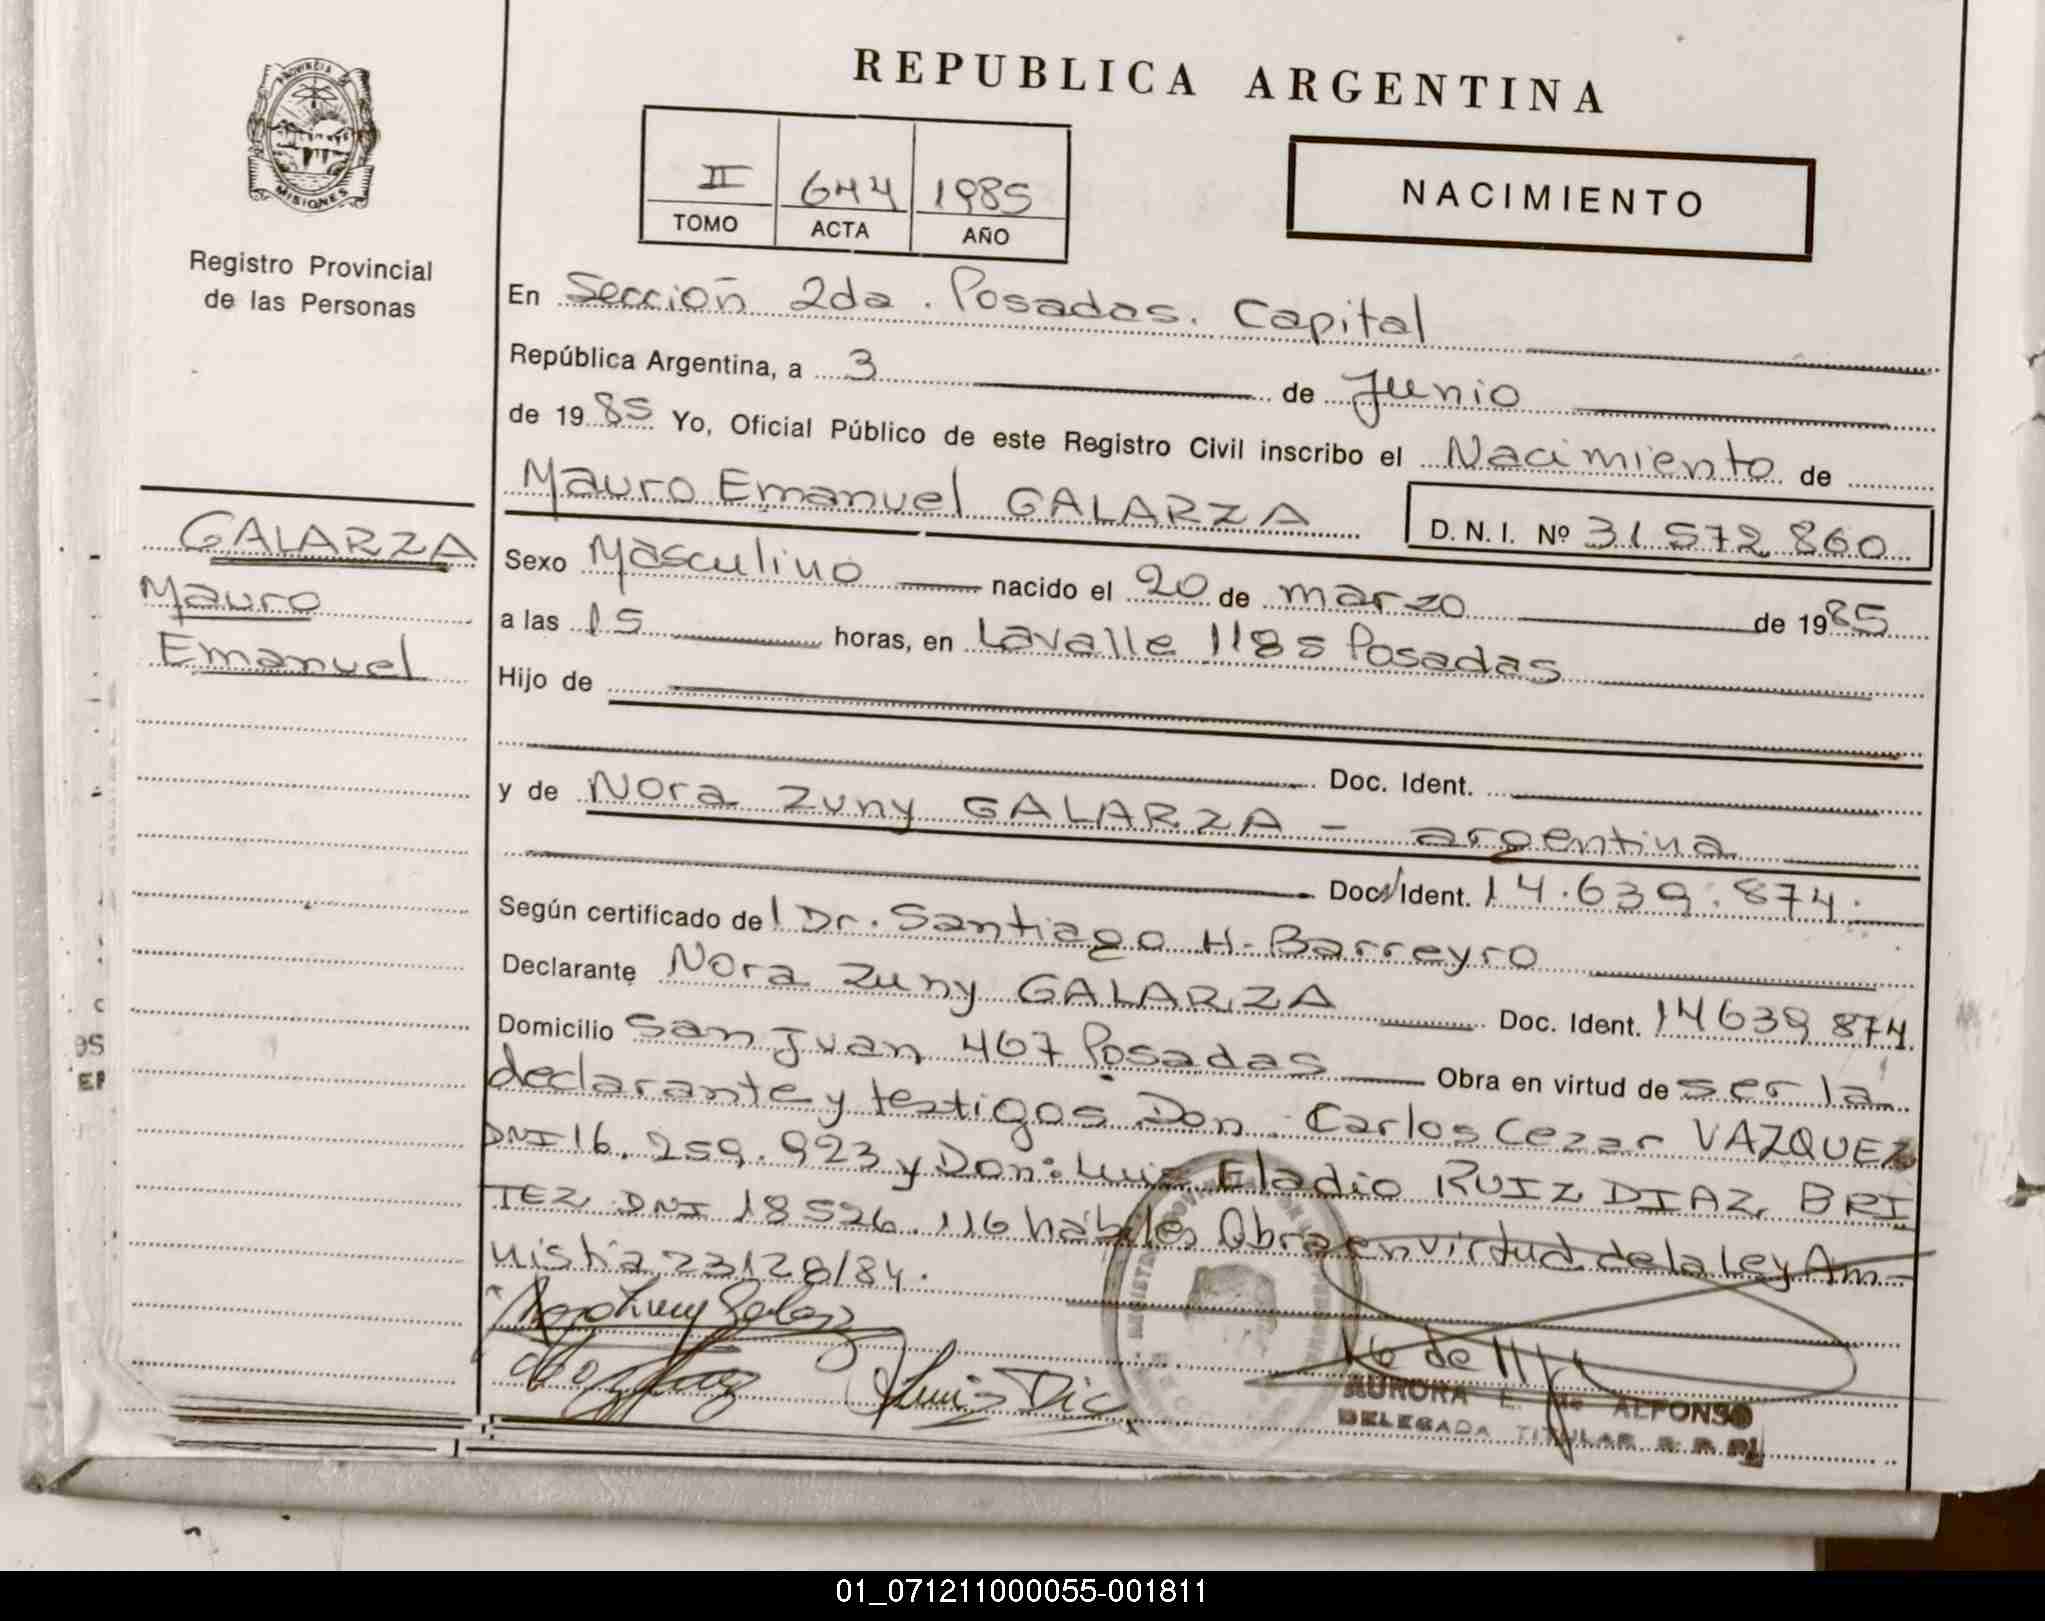 REPUBLICA ARGENTINA
PROVINCIA DE
MISIONES
Registro Provincial
de las Personas
II 644 1985
TOMO ACTA AÑO
NACIMIENTO
En Sección 2da. Posadas. Capital
República Argentina, a 3 de Junio
de 1985 Yo, Oficial Público de este Registro Civil inscribo el Nacimiento de
Mauro Emanuel GALARZA D.N.I. Nº 31 572 860
GALARZA
Mauro
Emanuel
Sexo Masculino nacido el 20 de marzo de 1985
a las 15 horas, en Lavalle 1185 Posadas
Hijo de
Doc. Ident.
y de Nora Zuny GALARZA - argentina
Doc. Ident. 14.639.874.
Según certificado del Dr. Santiago H. Barreyro
Declarante Nora Zuny GALARZA Doc. Ident. 14639874
Domicilio San Juan 467 Posadas Obra en virtud de ser la
declarante y testigos Don. Carlos Cezar VAZQUEZ
DNI 16.259.923 y Don: Luis Eladio RUIZ DIAZ BRI
TEZ DNI 18526.116 hábiles Obra en virtud de la ley Am-
nistia 23128/84.
Luis
AURORA E. de ALFONSO
DELEGADA TITULAR R.R.P.
01_071211000055-001811